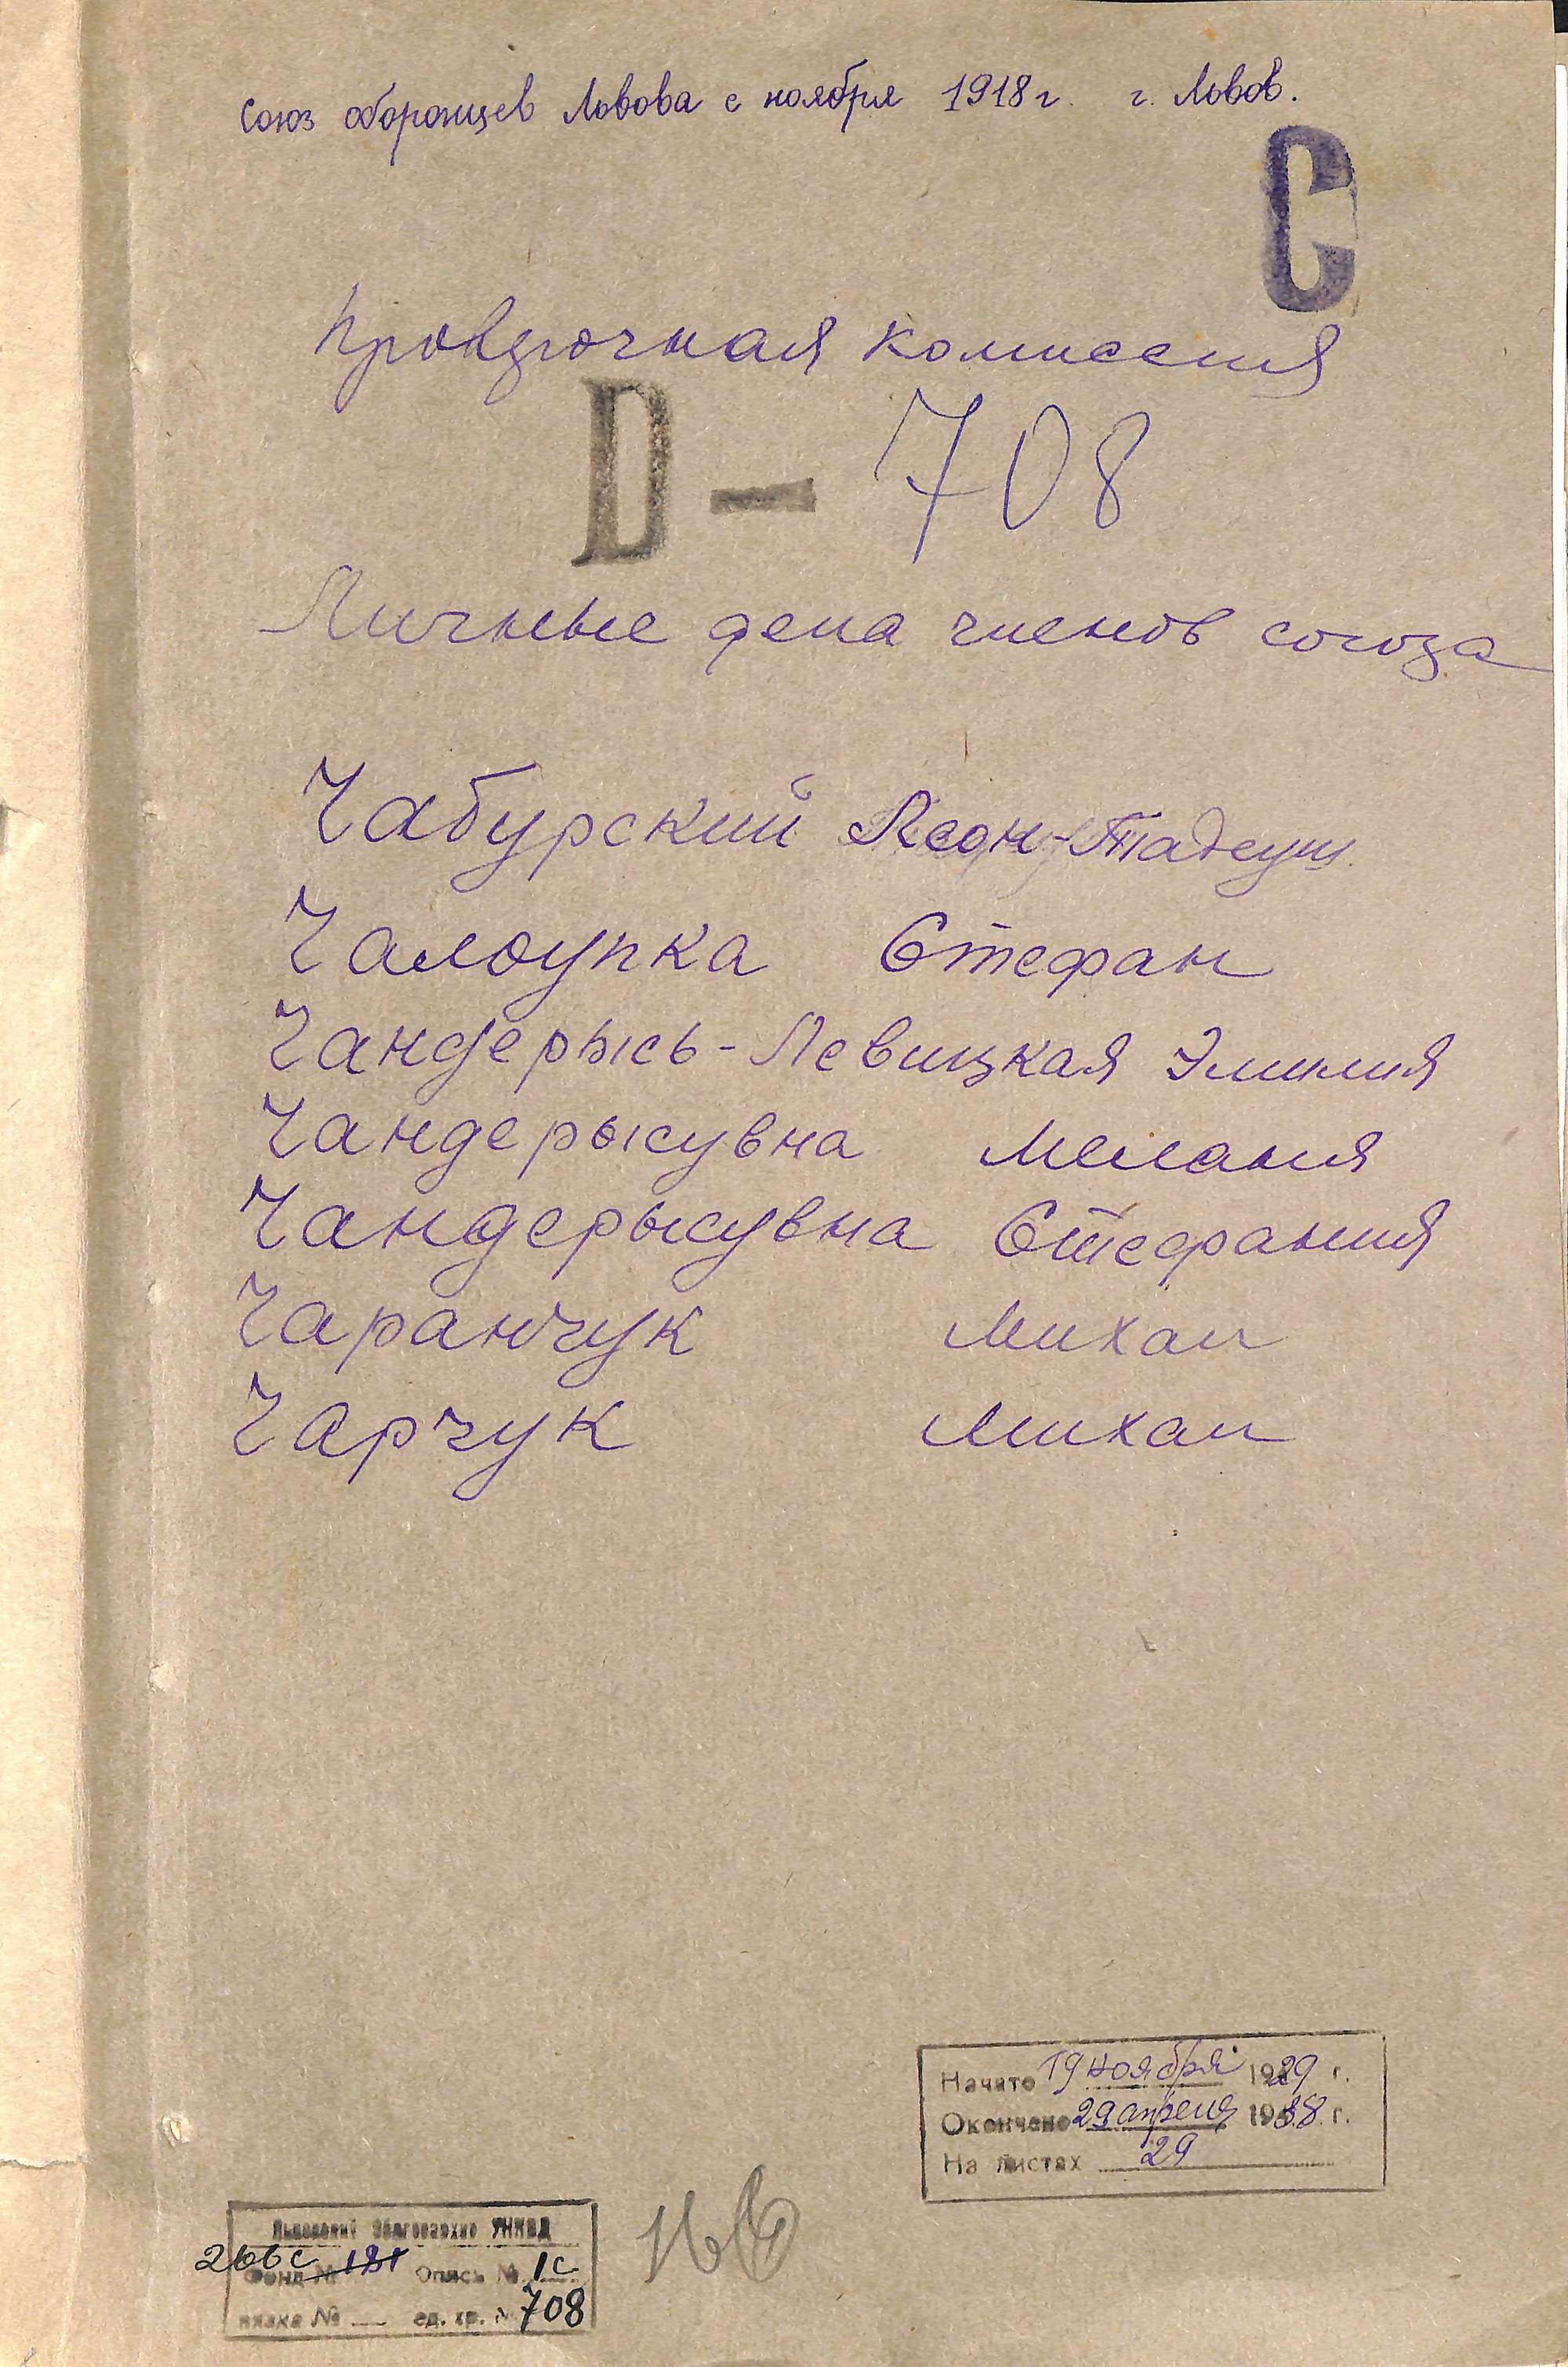 Союз оборонцев Львова с ноября 1918 г. г. Львов.
С
Проверочная комиссия
D — 708
Личные дела членов союза
Чабурский Леон-Тадеуш
Чалоупка Стефан
Чандерысь-Левицкая Эмилия
Чандерысувна Мелания
Чандерысувна Стефания
Чаранчук Михал
Чарчук Михал
Начато 19 ноября 1929 г.
Окончено 29 апреля 1938 г.
На листах 29
Львовский Облгосархив УНКВД
266с Фонд № 181 Опись № 1с
вязка № ед. хр. № 708